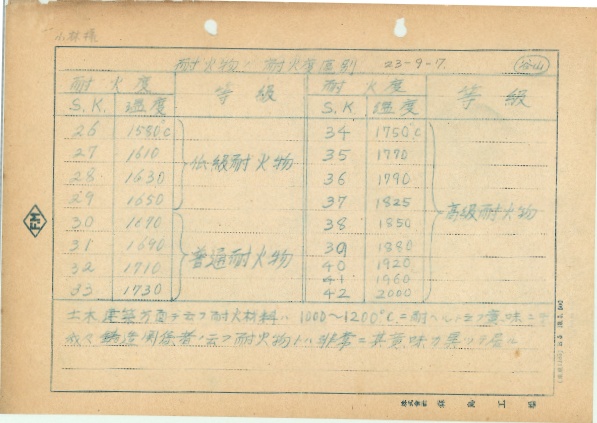 小林様
耐火物ノ耐火度区別 23-9-7.
耐火度 等級 耐火度 等級
S.K. 温度 S.K. 温度
26 1580°C 34 1750°C
27 1610 35 1770
28 1630 低級耐火物 36 1790
29 1650 37 1825
30 1670 38 1850 高級耐火物
31 1690 39 1880
32 1710 普通耐火物 40 1920
33 1730 41 1960
42 2000
土木建築方面デ云フ耐火材料ハ 1000～1200°C ニ耐ヘルト云フ意味ニテ
我々鋳造関係者ノ云フ耐火物トハ非常ニ其意味ガ異ツテ居ル
F.M
株式会社 工